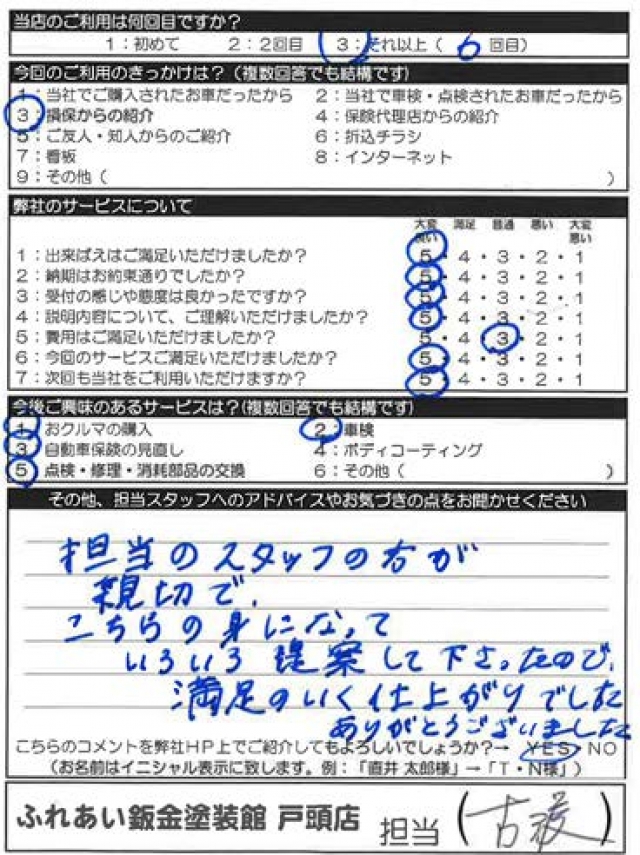 当店のご利用は何回目ですか？
1：初めて 2：2回目 3：それ以上（ 6 回目）
今回のご利用のきっかけは？（複数回答でも結構です）
1：当社でご購入されたお車だったから 2：当社で車検・点検されたお車だったから
3：損保からの紹介 4：保険代理店からの紹介
5：ご友人・知人からのご紹介 6：折込チラシ
7：看板 8：インターネット
9：その他（ ）
弊社のサービスについて
大変良い 満足 普通 悪い 大変悪い
1：出来ばえはご満足いただけましたか？ 5・4・3・2・1
2：納期はお約束通りでしたか？ 5・4・3・2・1
3：受付の感じや態度は良かったですか？ 5・4・3・2・1
4：説明内容について、ご理解いただけましたか？ 5・4・3・2・1
5：費用はご満足いただけましたか？ 5・4・3・2・1
6：今回のサービスご満足いただけましたか？ 5・4・3・2・1
7：次回も当社をご利用いただけますか？ 5・4・3・2・1
今後ご興味のあるサービスは？(複数回答でも結構です)
1：おクルマの購入 2：車検
3：自動車保険の見直し 4：ボディコーティング
5：点検・修理・消耗部品の交換 6：その他（ ）
その他、担当スタッフへのアドバイスやお気づきの点をお聞かせください
担当のスタッフの方が
親切で、
こちらの身になって
いろいろ提案して下さったので、
満足のいく仕上がりでした
ありがとうございました
こちらのコメントを弊社HP上でご紹介してもよろしいでしょうか？→ YES・NO
（お名前はイニシャル表示に致します。例：「直井 太郎様」→「T・N様」）
ふれあい鈑金塗装館 戸頭店 担当（ 古 ）